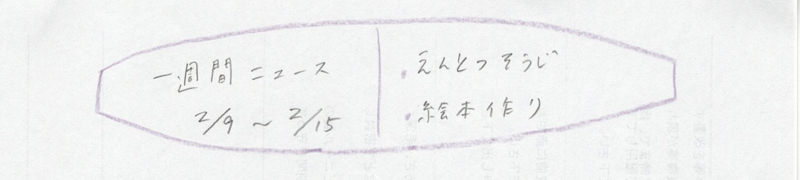 一週間ニュース
2/9 ~ 2/15
・えんとつそうじ
・絵本作り